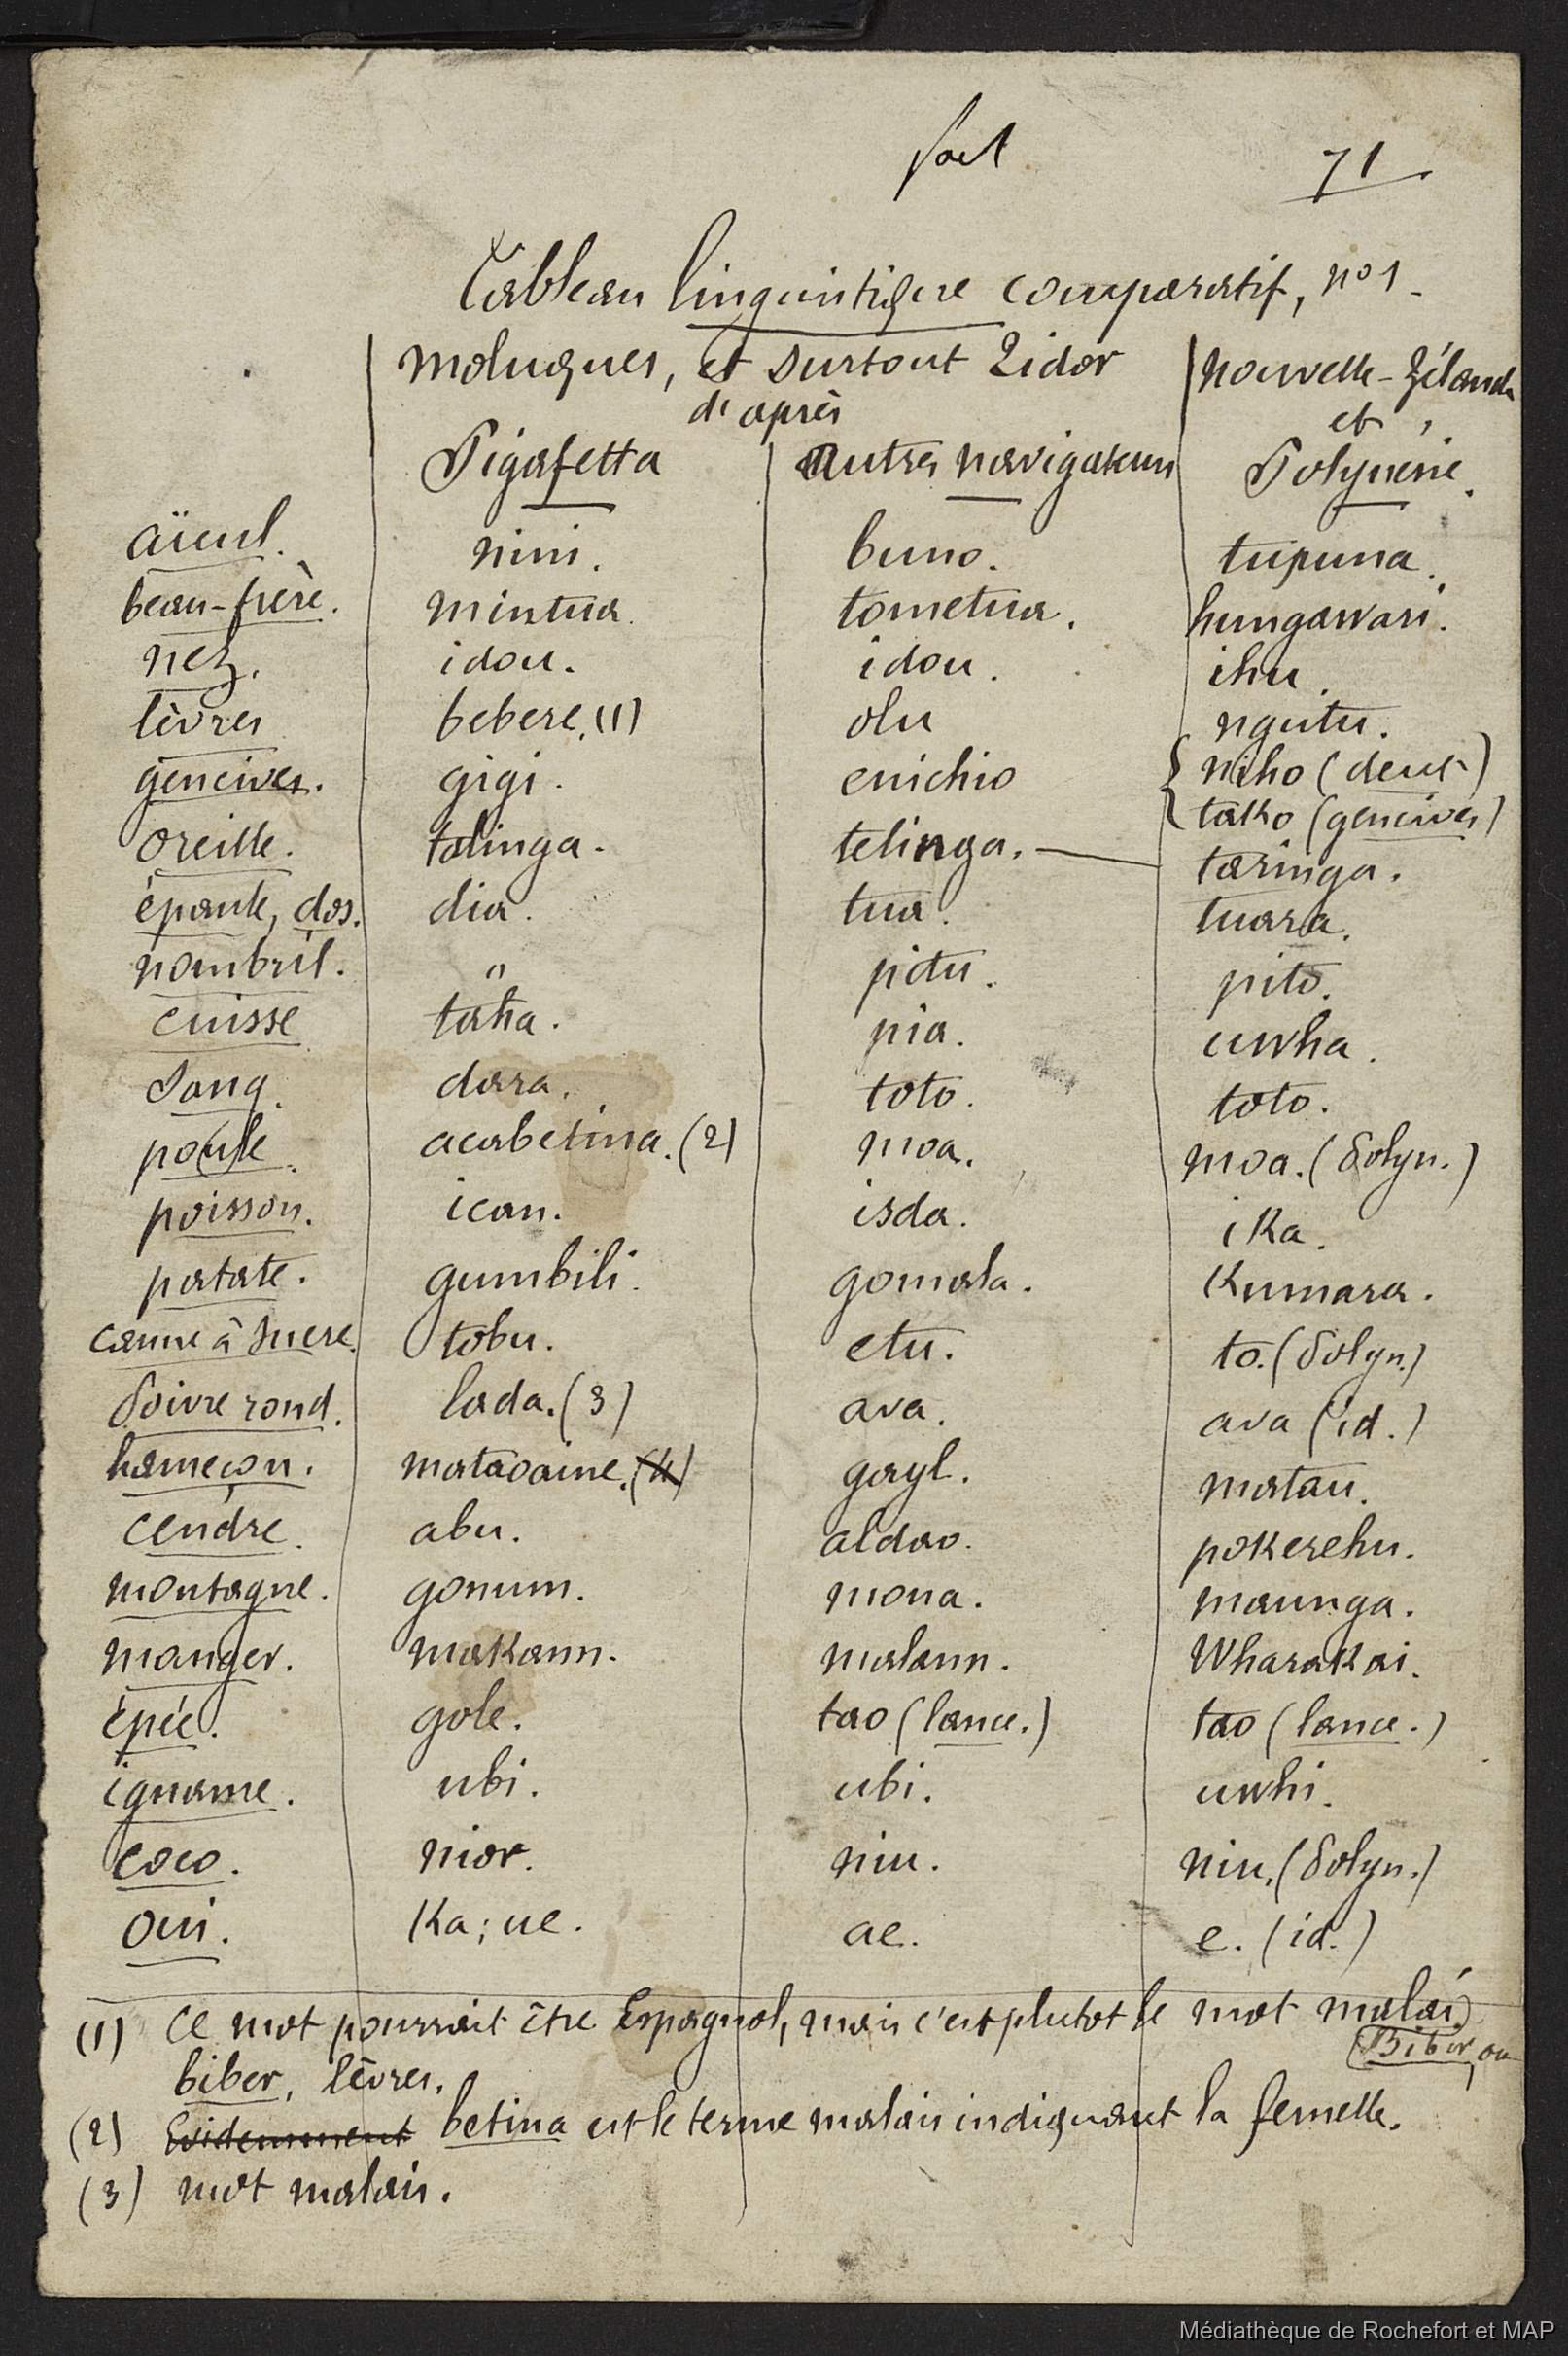 fait
71
Tableau linguistique comparatif, no 1.
Moluques, et surtout Tidor
d'après
Nouvelle-Zélande
et
Pigafetta autres navigateurs Polynésie.
aïeul. nini. buno. tupuna.
beau-frère. mintua. tometua. hungawari.
nez. idou. idou. ihu.
lèvres bebere. (1) olu ngutu.
gencives. gigi. enichio niho (dents)
tako (gencives)
oreille. talinga. telinga. taringa.
épaule, dos. dia. tua. tuara.
nombril. " pitu. pito.
cuisse taha. pia. uwha.
Sang. dara. toto. toto.
poule. acabetina. (2) moa. moa. (Polyn.)
poisson. ican. isda. ika.
patate. gumbili. gomala. Kumara.
canne à sucre. tobu. etu. to. (Polyn.)
Poivre rond. lada. (3) ava. ava (id.)
hameçon. matacaine. (4) gayl. matau.
cendre. abu. aldao. pokerehu.
montagne. gonum. mona. maunga.
manger. makann. malann. Wharakai.
épée. gole. tao (lance.) tao (lance.)
igname. ubi. ubi. uwhi.
coco. nior. niu. niu. (Polyn.)
oui. Ka; ue. ae. e. (id.)
(1) Ce mot pourrait être Espagnol, mais c'est plutot le mot malai
Bibir, ou
biber, lèvres.
(2) Evidemment betina est le terme malais indiquant la femelle.
(3) mot malais.
Médiathèque de Rochefort et MAP